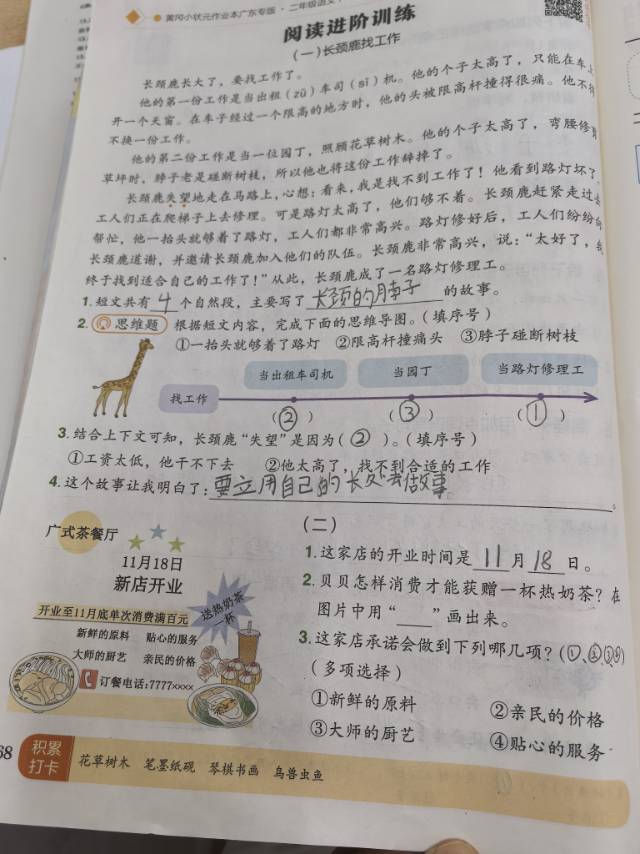 黄冈小状元作业本广东专版·二年级语文
阅读进阶训练
（一）长颈鹿找工作
长颈鹿长大了，要找工作了。
他的第一份工作是当出租（zū）车司（sī）机。他的个子太高了，只能在车上
开一个天窗。在车子经过一个限高的地方时，他的头被限高杆撞得很痛。他不得
不换一份工作。
他的第二份工作是当一位园丁，照顾花草树木。他的个子太高了，弯腰修剪
草坪时，脖子老是碰断树枝，所以他也将这份工作辞掉了。
长颈鹿失望地走在马路上，心想：看来，我是找不到工作了！他看到路灯坏了，
工人们正在爬梯子上去修理。可是路灯太高了，他们够不着。长颈鹿赶紧走过去
帮忙，他一抬头就够着了路灯，工人们都非常高兴。路灯修好后，工人们纷纷向
长颈鹿道谢，并邀请长颈鹿加入他们的队伍。长颈鹿非常高兴，说：“太好了，我
终于找到适合自己的工作了！”从此，长颈鹿成了一名路灯修理工。
1.短文共有 4 个自然段，主要写了 长颈的脖子 的故事。
2.思维题 根据短文内容，完成下面的思维导图。（填序号）
①一抬头就够着了路灯 ②限高杆撞痛头 ③脖子碰断树枝
当出租车司机 当园丁 当路灯修理工
找工作
（②） （③） （①）
3.结合上下文可知，长颈鹿“失望”是因为（②）。（填序号）
①工资太低，他干不下去 ②他太高了，找不到合适的工作
4.这个故事让我明白了：要立用自己的长处去做事。
（二）
广式茶餐厅
11月18日
新店开业
开业至11月底单次消费满百元
送热奶茶
一杯
新鲜的原料 贴心的服务
大师的厨艺 亲民的价格
订餐电话:7777××××
1.这家店的开业时间是 11 月 18 日。
2.贝贝怎样消费才能获赠一杯热奶茶？在
图片中用“____”画出来。
3.这家店承诺会做到下列哪几项？（①、②③④）
（多项选择）
①新鲜的原料 ②亲民的价格
③大师的厨艺 ④贴心的服务
68
积累
打卡
花草树木 笔墨纸砚 琴棋书画 鸟兽虫鱼